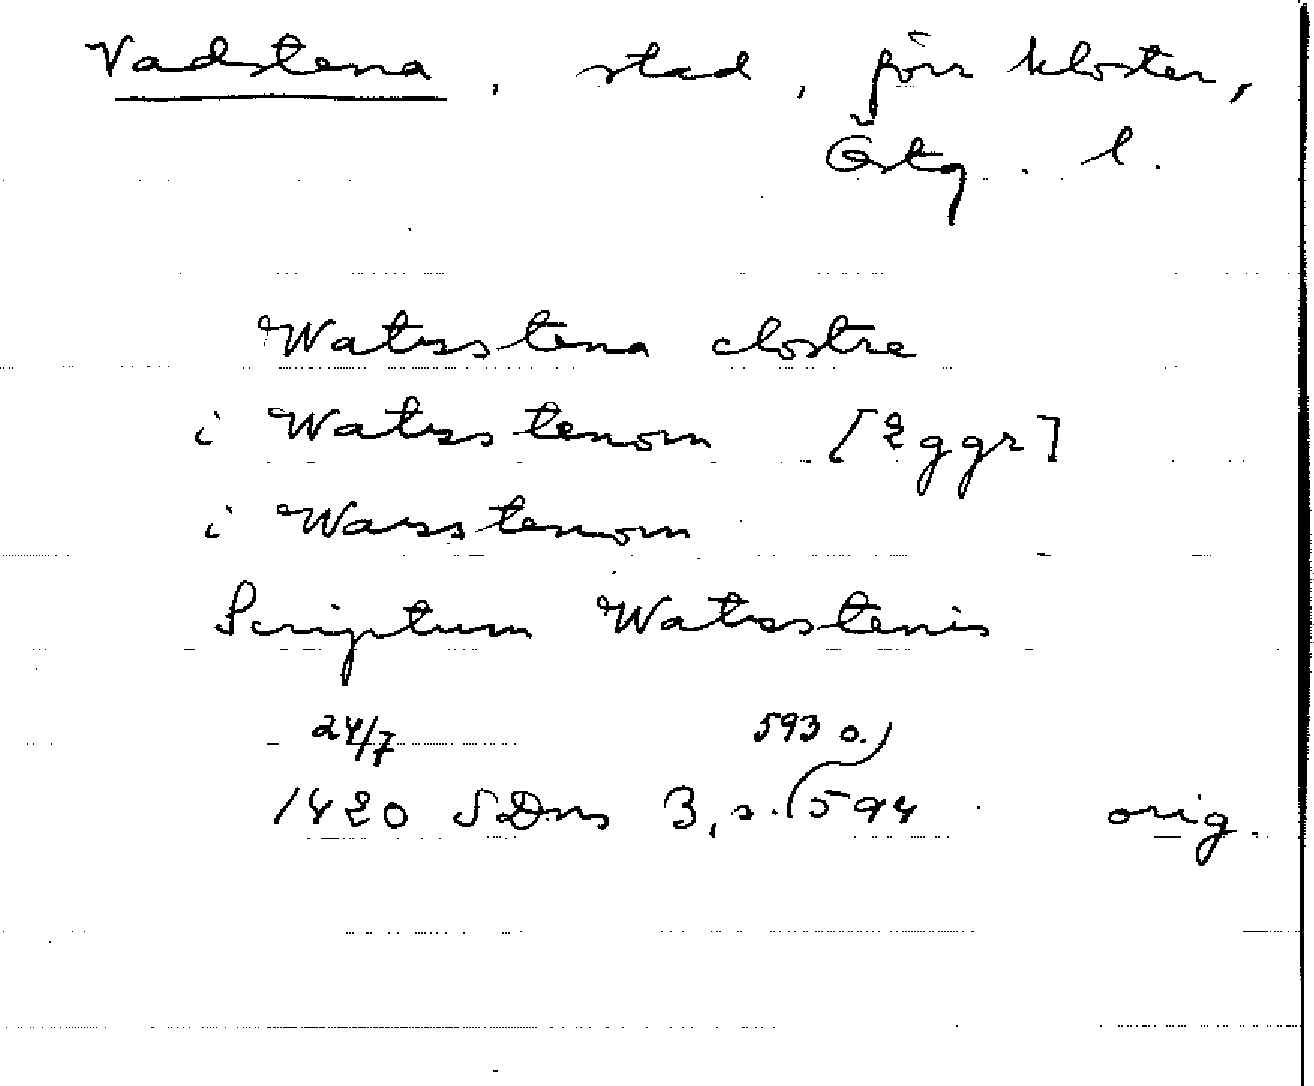 Vadstena, stad, förr kloster,
Östg. l.
Watzstena clostre
i Watzstenom [2 ggr]
i Wazstenom
Scriptum Watzstenis
24/7 593 o.
1420 SDns 3, s. 594 orig.